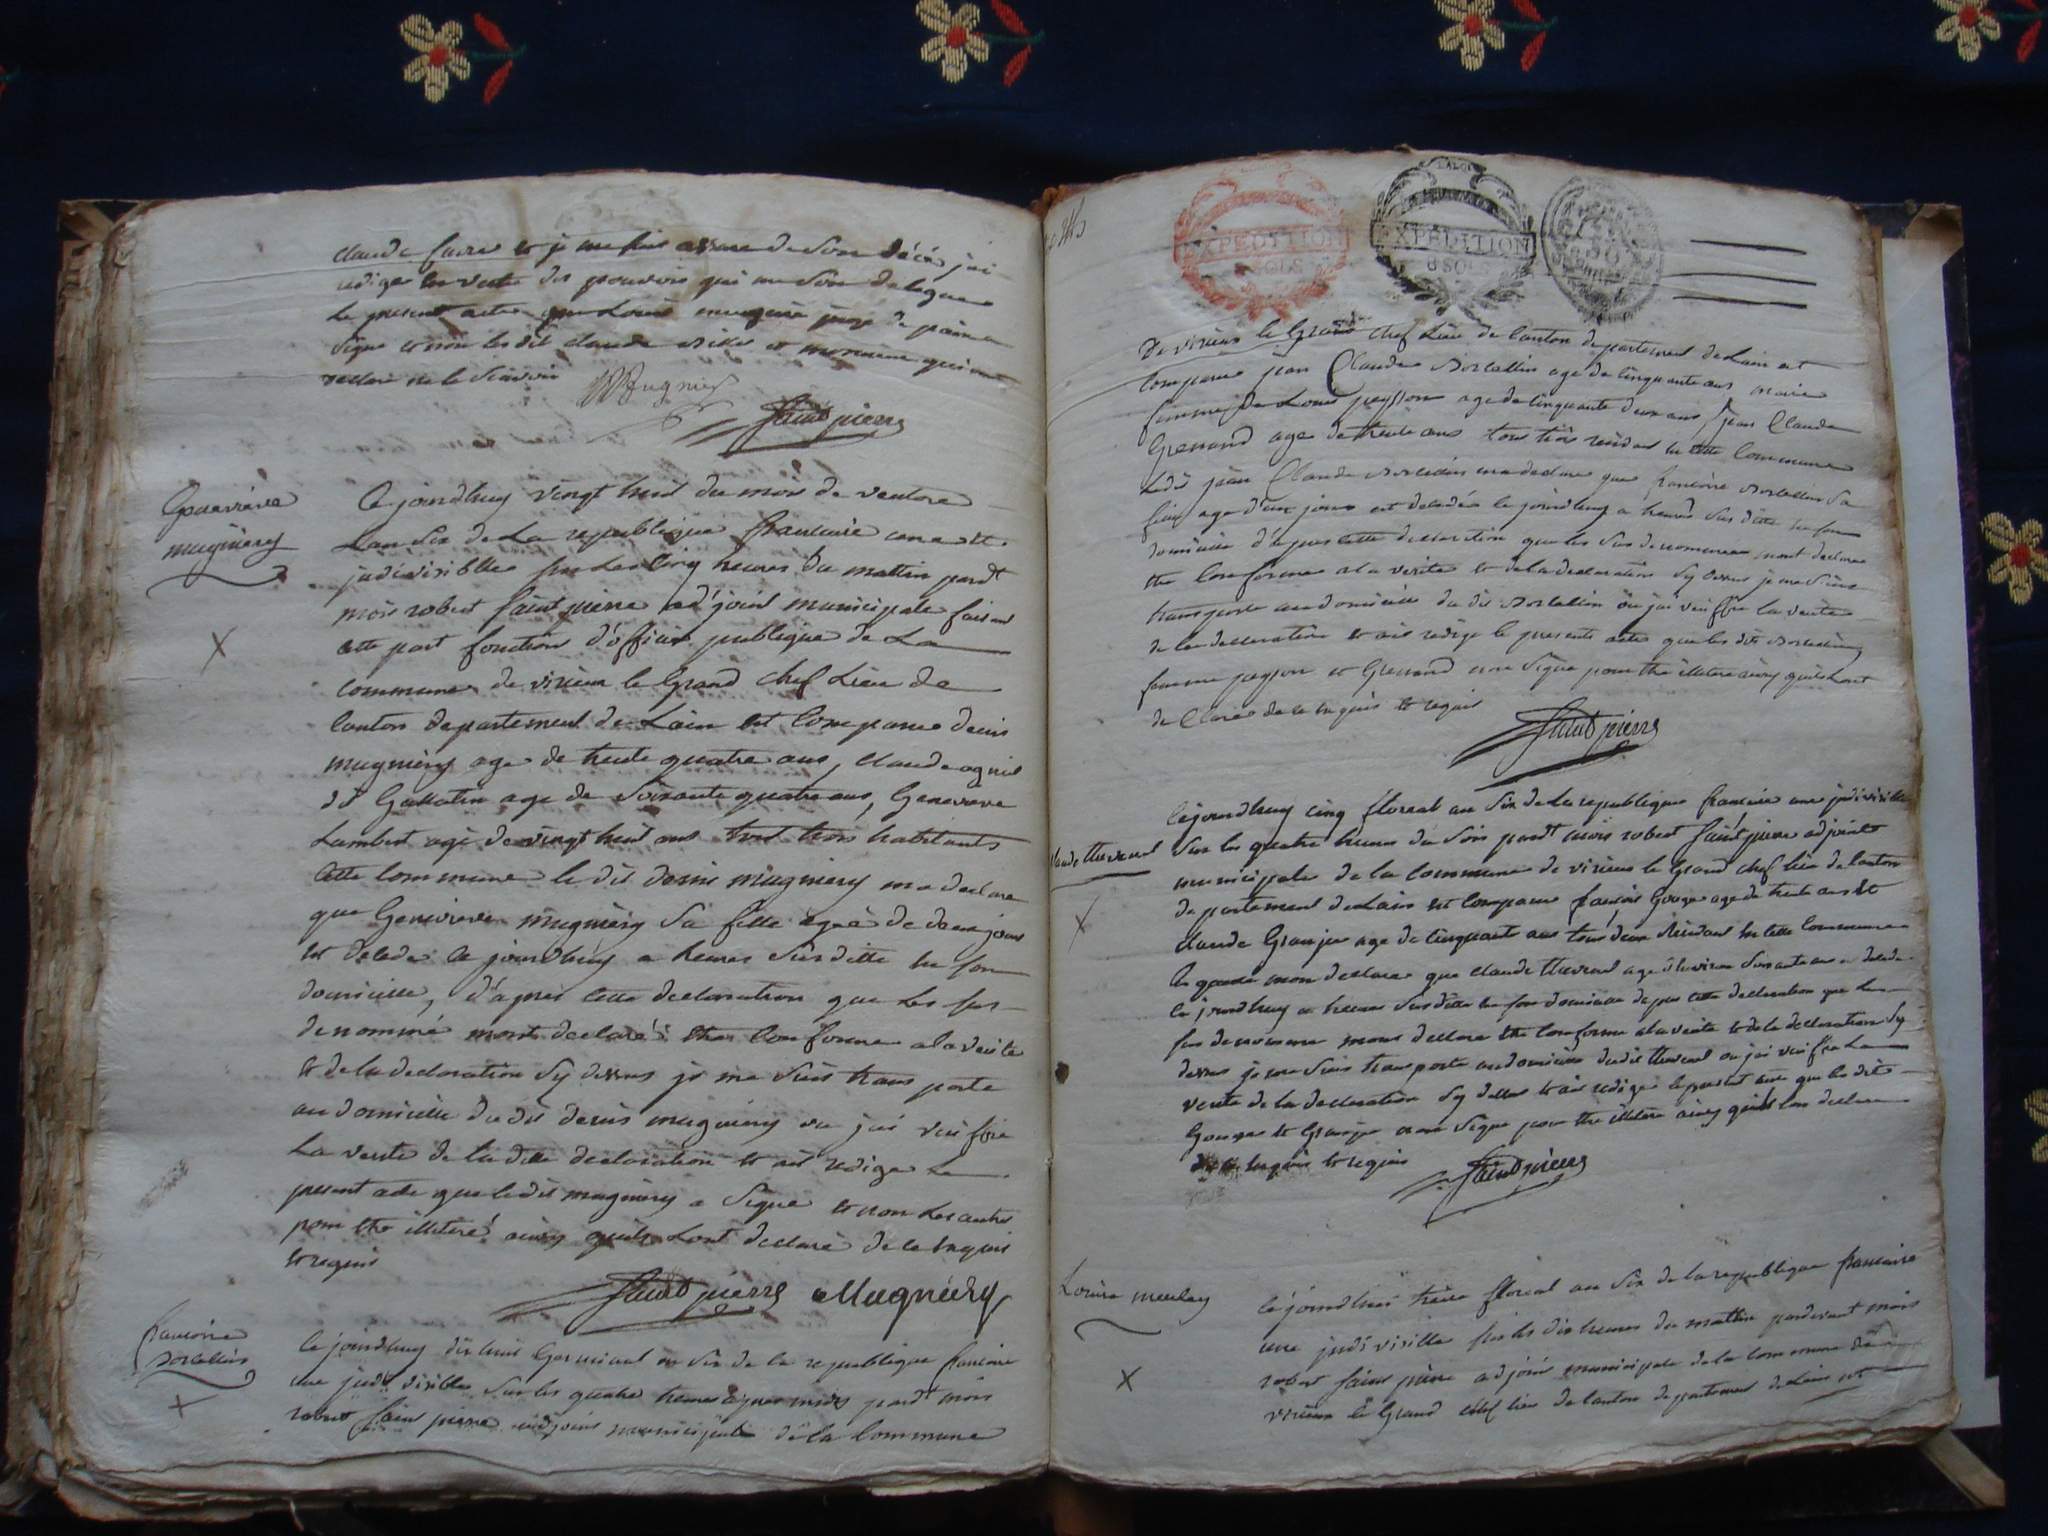 claude favre et je me suis assure de son décé jai
redige en vertu des pouvoirs qui me son delegue
Le present acte que Louis mugnié juge de paix a
signe et non les dit claude et qui ont
declare ne le scavoir
Mugnier
Saint pierre
Genevieve
mugniery
X
Ce jourdhuy vingt huit du mois de ventose
Lan six de La republique francaise une et
jndivisiblle sur les cinq heures du mattin pardt
mois robert saint pierre adjoint municipale faisant
cette part fonction d'officié publique de La
commune de virieu le Grand chef Lieu de
canton departement de Lain est comparue denis
mugniery age de trente quatre ans, claude
dit Gallatin age de soixante quatre ans, Genevieve
Lambert agé de vingt huit ans tout trois habitants
cette commune le dit denis mugniery ma declare
que Genevieve mugniery sa fille agéé de deux jours
et decede ce jourdhuy a heures susditte en son
domicille, d'après cette declaration que les sus
denommé mont declaré etre conforme a la verite
et de la declaration sy dessus je me suis trans porte
au domicille du dit denis mugniery ou jai verifié
La verite de la ditte declaration et ait redige Le
present acte que le dit mugniery a signe et non Les autres
pour etre illitere ainsy quils Lont declaré de ce enquis
et requis
Saint pierre Mugniéry
francoise
borcellin
X
Ce jourdhuy dix huit Germinal an six de la republique francaise
une jndivisible sur les quatre heures apres midy pardt mois
robert saint pierre adjoint municipale de la commune
EXPEDITION
8 SOLS
EXPEDITION
8 SOLS
De virieu le Grand chef Lieu de canton departement de Lain est
comparue jean Claude age de cinquante ans marie
femme de Louis peysson age de cinquante deux ans, jean Claude
Grenand age de trente ans tous trois residant en cette commune
Ledit jean Claude ma declare que francoise sa
fille age d'eux jours est decedée ce jourdhuy a heures sus ditte en son
domicille d'apres cette declaration que les sus denommé mont declare
etre conforme a la verite et de la declaration sy dessus je me suis
transporte au domicille du dit ou jai verifié la verite
de la declaration et ait redige le presente acte que les dits
femme peyson et Grenand non signe pour etre illitere ainsy quils Lont
de Clare de ce enquis et requis
Saint pierre
claude thevenel
X
Cejourdhuy cinq floreal an six de La republique francaise une jndivisible
sur les quatre heures du soir pardt mois robert saint pierre adjoint
municipale de la commune de virieu le Grand chef lieu de canton
departement de Lain est comparue francois Gouge age de trente ans et
claude Granjer age de cinquante ans tous deux residant en cette commune
mon declare que claude thevenel age d'environ soixante ans a decede
ce jourdhuy a heures sus ditte en son domicille dapres cette declaration que les
sus denomme mont declare etre conforme a la verite et de la declaration sy
dessus je me suis transporte au domicille dudit thevenel ou jai verifie La
verite de la declaration sy dessus et ait redige le present acte que les dits
Gouge et Granjer non signe pour etre illitere ainsy quils lon declare
de ce enquis et requis
Saint pierre
Louise
X
Ce jourdhui treize floreal an six de la republique francaise
une jndivisible sur les dix heures du mattin pardevant mois
robert saint pierre adjoint municipale de la commune de
virieu le Grand chef lieu de canton departement de Lain est